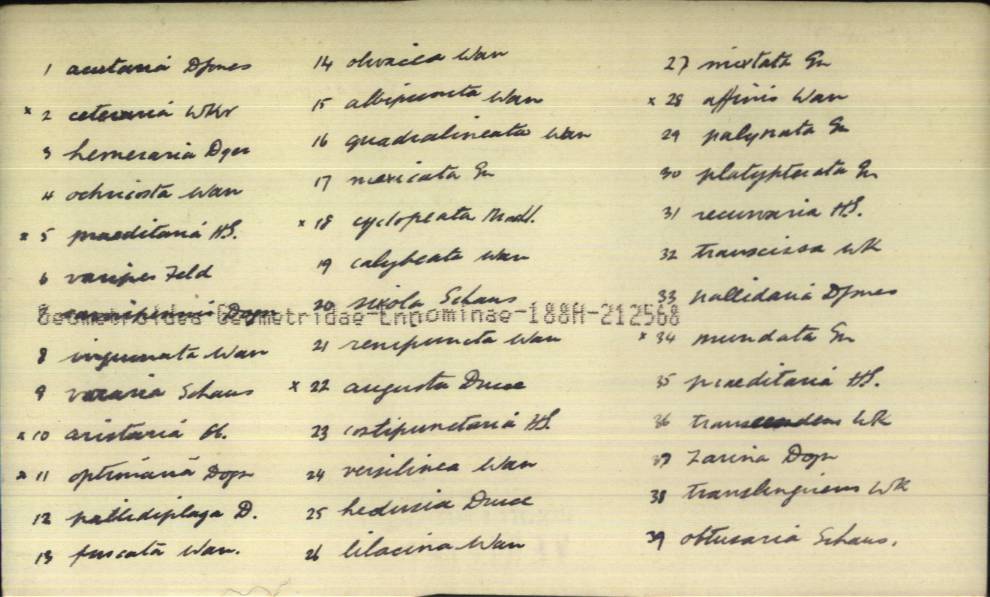 1 acutaria DJones
x 2 ceteraria Wkr
3 hemeraria Dgn
4 ochricosta Wan
x 5 praeditaria HS.
6 varipes Feld
Geometroidea Geometridae-Ennominae-188H-212568
8 Wan
9 Schaus
x 10 aristaria
x 11 optimaria Dogn
12 pallidiplaga D.
13 fuscata Wan.
14 olivacea Wan
15 albipuncta Wan
16 quadralineata Wan
17 mexicata Gn
x 18 cyclopeata
19 calybeata Wan
20 sixola Schaus
21 renipuncta Wan
x 22 augusta Druce
23 costipunctaria HS.
24 versilinea Wan
25 hedusia Druce
26 lilacina Wan
27 mixtata Gn
x 28 affinis Wan
29 palynata Gn
30 platypterata Gn
31 recurvaria HS.
32 transcissa Wk
33 pallidaria DJones
x 34 mundata Gn
35 praeditaria HS.
36 transcendens Wk
37 zarina Dogn
38 translinquens Wk
39 obtusaria Schaus.